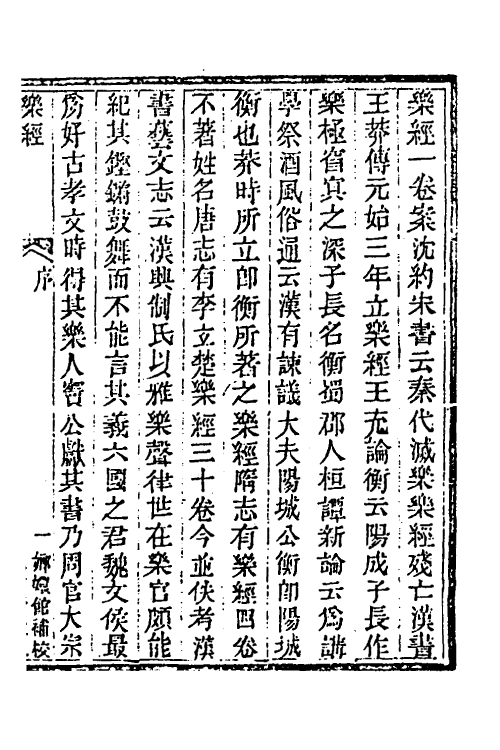 樂經一卷案沈約宋書云秦代滅樂樂經殘亡漢書
王莽傳元始三年立樂經王充論衡云陽成子長作
樂極窅冥之深子長名衡蜀郡人桓譚新論云爲講
學祭酒風俗通云漢有諫議大夫陽城公衡卽陽城
衡也莽時所立卽衡所著之樂經隋志有樂經四卷
不著姓名唐志有李立楚樂經三十卷今並佚考漢
書藝文志云漢興制氏以雅樂聲律世在樂官頗能
紀其鏗鏘鼓舞而不能言其義六國之君魏文侯最
爲好古孝文時得其樂人竇公獻其書乃周官大宗
樂經
序
一
嫏嬛館補校